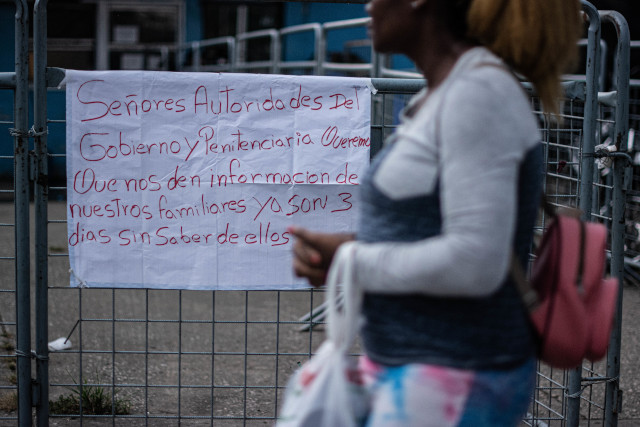 Señores Autoridades Del
Gobierno y Penitenciaria Queremo
Que nos den informacion de
nuestros familiares ya son 3
dias sin Saber de ellos